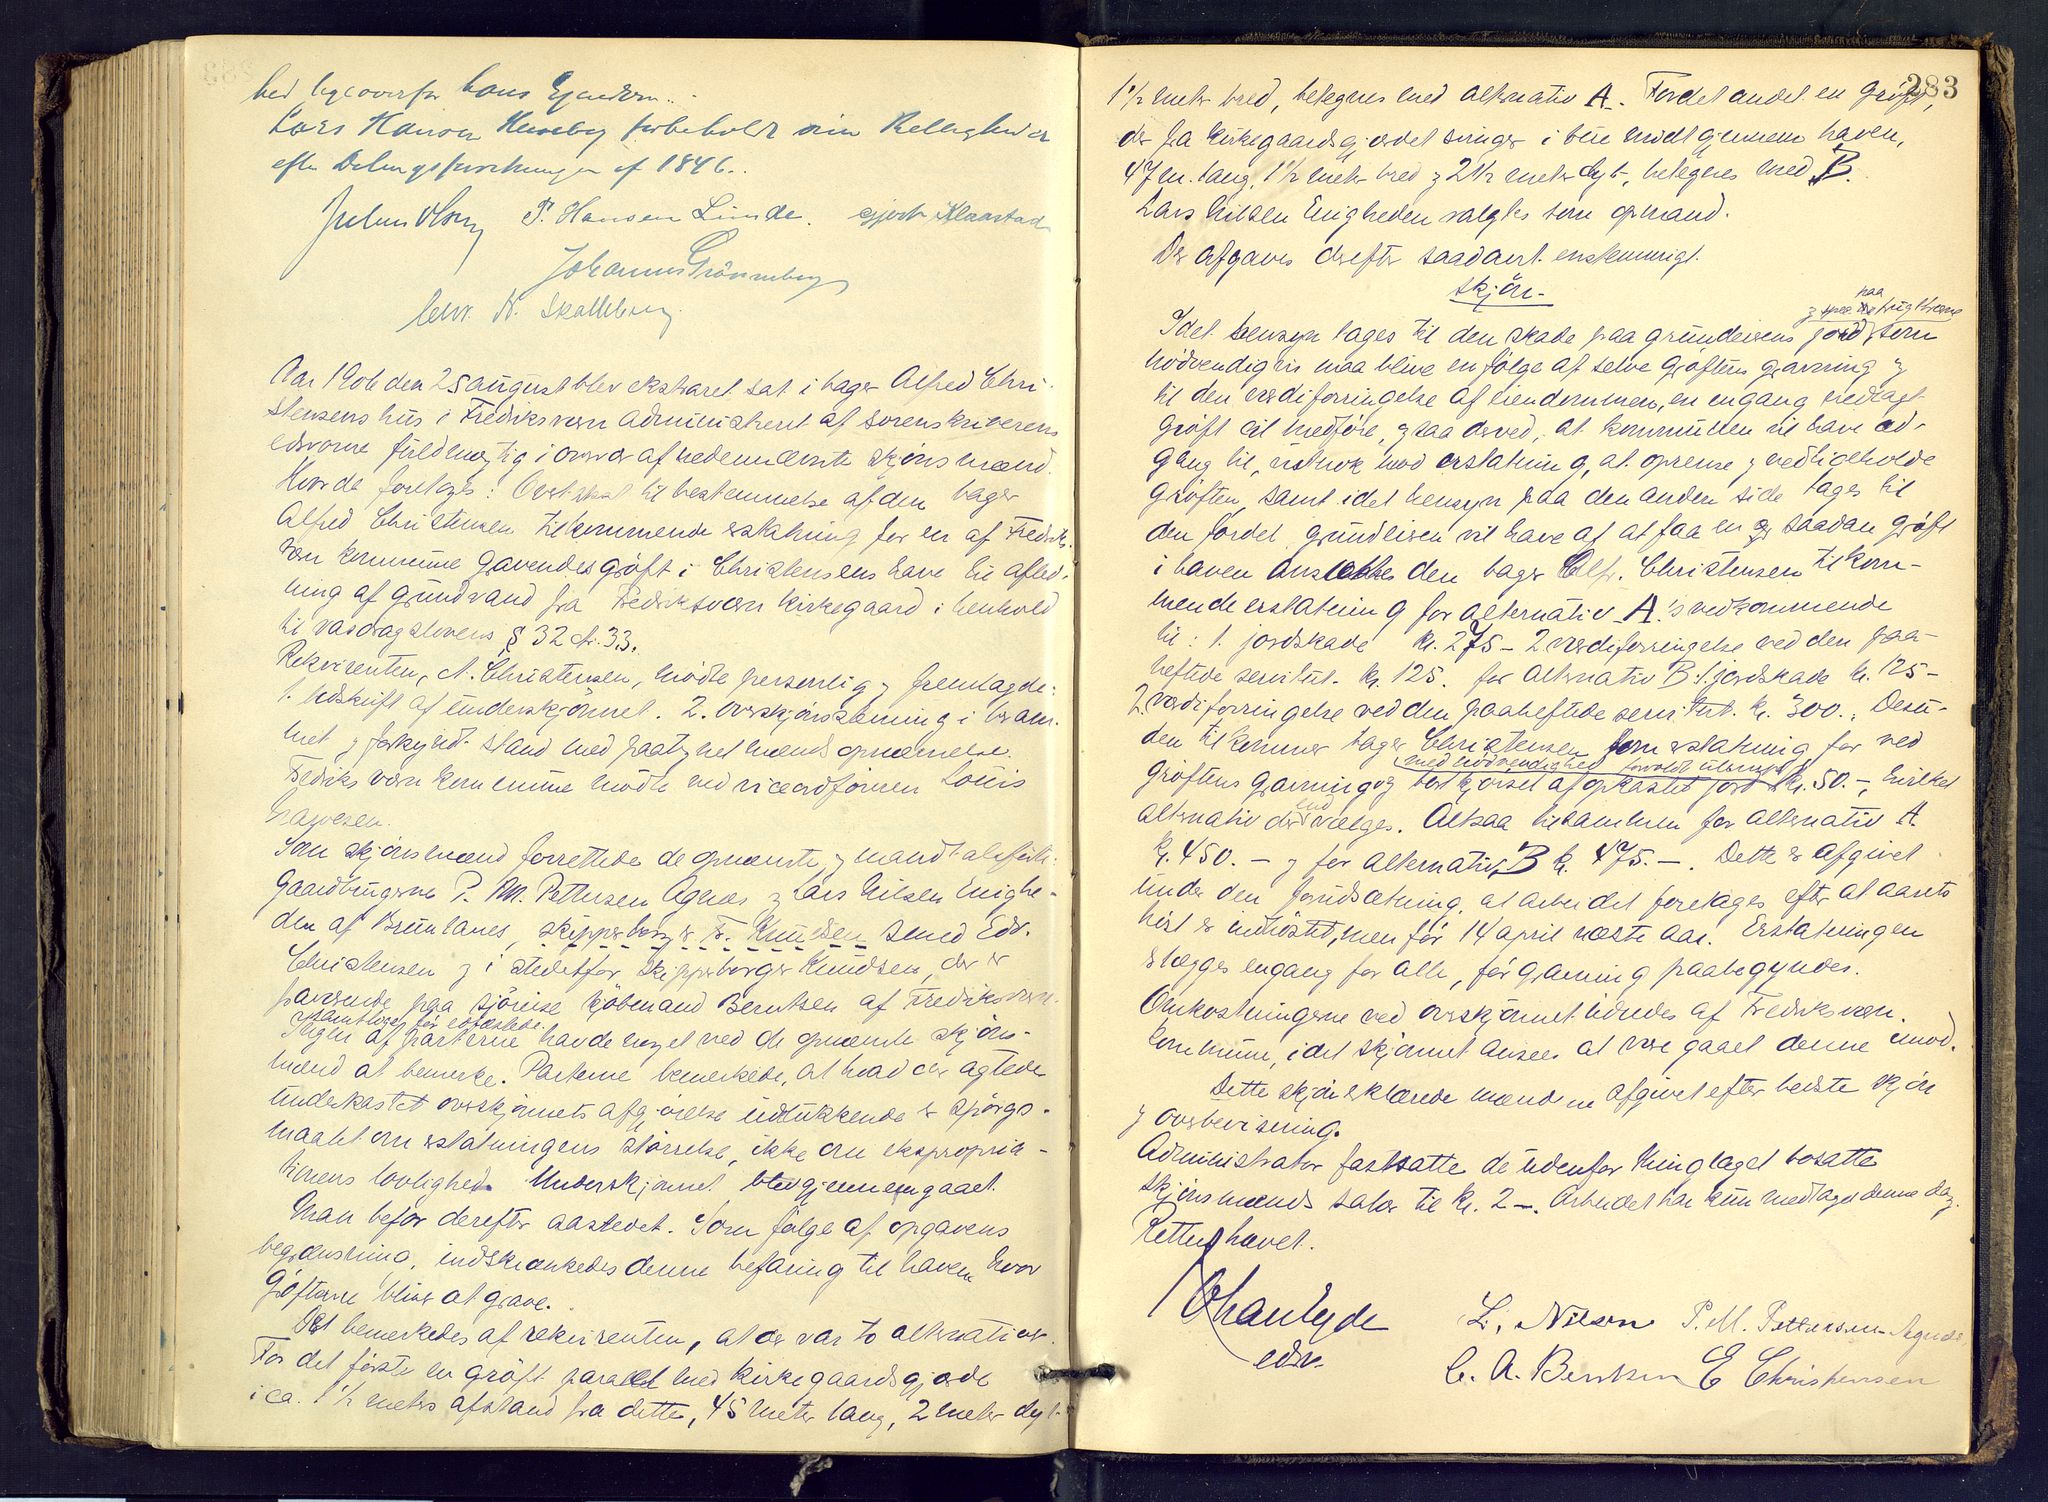 hed ligeoverfor hans Ejendom.
Lars Hansen forbeholdt sin Rettigheder
efter Delingsforretningen af 1846.
Julius Olsen P. Hansen Linde. Gjert Klaastad
Johannes Grønneberg
Chr. N. Skalleberg.
Aar 1906 den 25 august blev ekstraret sat i bager Alfred Chri-
stensens hus i Fredriksværn administreret af sorenskriverens
edsvorne fuldmægtig i overvær af nedennævnte skjønsmænd.
Hvorda foretages: Overtakst til bestemmelse af den bager
Alfred Christensen tilkommende erstatning for en af Fredriks-
værn kommune gravendes grøft i Christensens have til afled-
ning af grundvand fra Fredriksværn kirkegaard i henhold
til vasdragslovens § 32 cfr. 33.
Rekvirenten, A. Christensen, mødte personlig og fremlagde:
1. udskrift af underskjønnet. 2. overskjønsstevning i beram-
met og forkyndt stand med paategnet mænds opnævnelse.
Fredriksværn kommune mødte ved viceordfører Louis
Som skjønsmænd forrettede de opnævnte og mandtalsførte:
gaardbrugerne P. M. Pettersen Agnes og Lars Nilsen Enighe-
den af Brunlanes, skipperborger Fr. Knudsen, smed Edv.
Christensen og i stedetfor skipperborger Knudsen, der er
fraværende paa sjøreise kjøbmand Berntsen af Fredriksværn.
samtlige før edfæstede.
Ingen af parterne havde noget ved de opnævnte skjøns-
mænd at bemerke. Parterne bemerkede, at hvad der agtedes
underkastet overskjønnets afgjørelse udelukkende er spørgs-
maalet om erstatningens størrelse, ikke om ekspropria-
tionens lovlighed. Underskjønnet blev gjennemgaaet.
Man befor derefter aastedet. Som følge af opgavens
begrænsning, indskrænkedes denne befaring til haven hvor
grøften bliver at grave.
Det bemerkedes af rekvirenten, at der var to alternativer.
For det første en grøft paralel med kirkegaardsgjerde
i ca. 1½ meters afstand fra dette, 45 meter lang, 2 meter dyb
283
1½ meter bred, betegnes med alternativ A. For det andet en grøft,
der fra kirkegaardsgjerdet svinger i bue midt gjennem haven,
47 m. lang, 1½ meter bred og 2½ meter dyb, betegnes med B.
Lars Nilsen Enigheden valgtes som opmand.
Der afgaves derefter saadant enstemmigt
Skjøn-
paa
og frugttræerne
Idet hensyn tages til den skade paa grundeierens jord, som
nødvendigvis maa blive en følge af selve grøftens gravning og
til den værdiforringelse af eiendommen, en engang nedlagt
grøft vil medføre, ogsaa derved, at kommunen vil have ad-
gang til, vistnok mod erstatning, at oprense og vedligeholde
grøften, samt idet hensyn paa den anden side tages til
den fordel grundeieren vil have af at faa en saadan grøft
i haven ansættes den bager Alf. Christensen tilkom-
mende erstatning for alternativ A.'s vedkommende
til: 1. jordskade kr. 275 - 2. værdiforringelse ved den paa-
heftede servitut. kr. 125. for alternativ B: 1. jordskade kr. 125 -
2. værdiforringelse ved den paaheftede servitut. kr. 300. Desu-
den tilkommer bager Christensen som erstatning for ved
med nødvendighed forvoldt ulempe
grøftens gravning og bortkjørsel af opkastet jord kr. 50.-, hvilket
alternativ der end vælges. Altsaa tilsammen for alternativ A.
kr. 450. - og for alternativ B kr. 475. -. Dette er afgivet
under den forudsætning, at arbeidet foretages efter at aarets
høst er indhøstet, men før 14 april næste aar. Erstatningen
erlægges engang for alle, før gravning paabegyndes.
Omkostningerne ved overskjønnet udredes af Fredriksværn
kommune, idet skjønnet ansees at være gaaet denne imod.
Dette skjøn erklærede mændene afgivet efter bedste skjøn
og overbevisning.
Administrator fastsatte de udenfor thinglaget bosatte
skjønsmænds salær til kr. 2 -. Arbeidet har kun medtaget denne dag.
Retten hævet.
edsv.
L. Nilsen P. M. Pettersen Agnes
C. A. Berntsen E Christensen